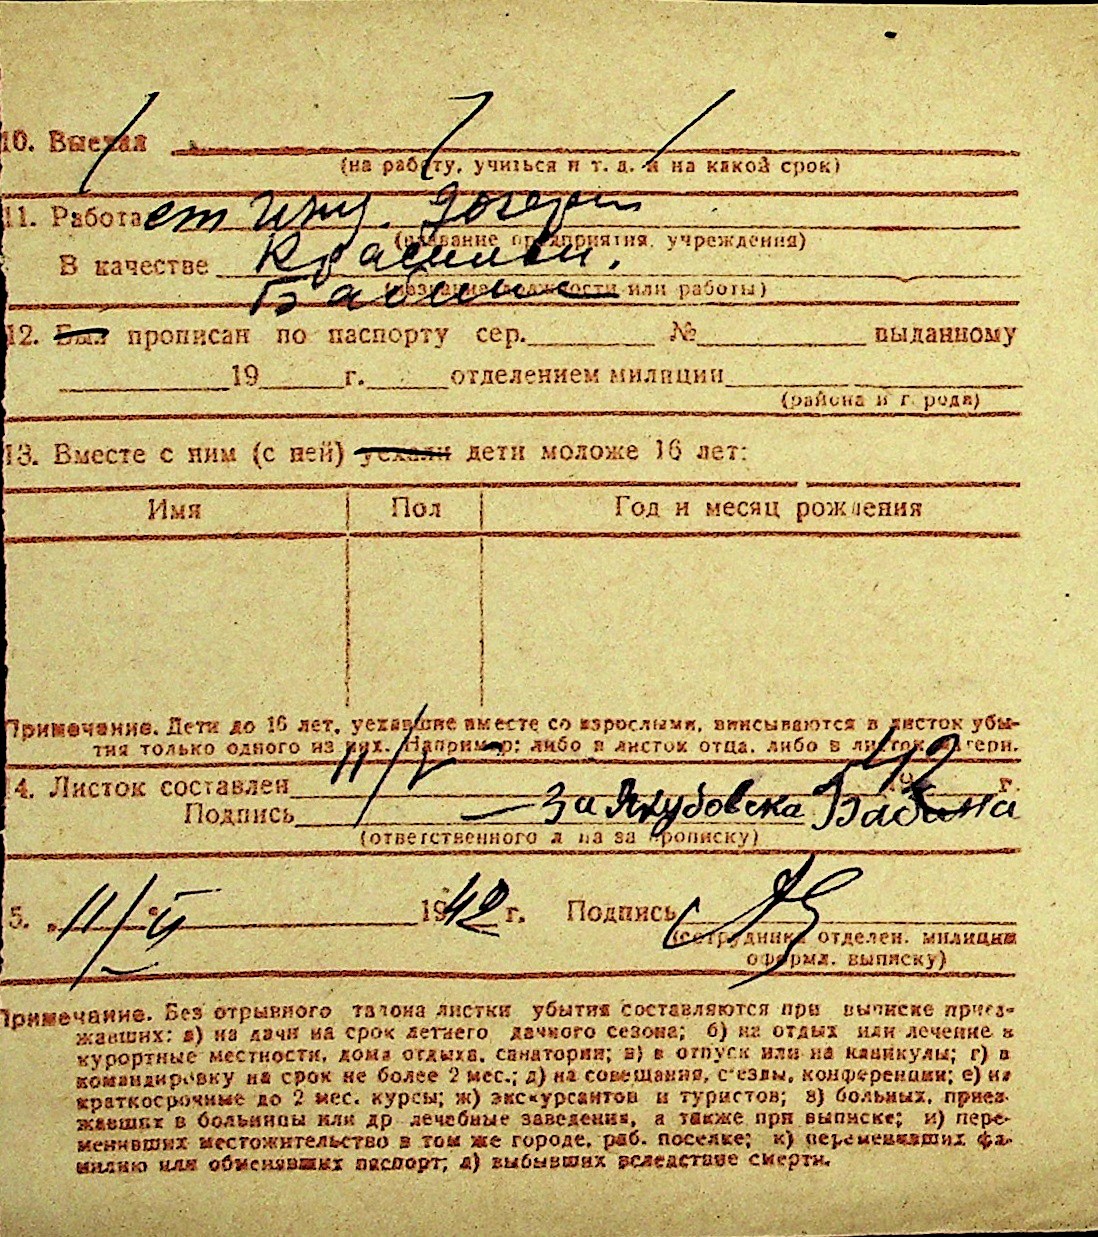 10. Выехал
(на работу, учиться и т. д. и на какой срок)
11. Работает
(название предприятия, учреждения)
В качестве
(название должности или работы)
12. Был прописан по паспорту сер. № выданному
19 г. отделением милиции
(района и города)
13. Вместе с ним (с ней) уехали дети моложе 16 лет:
Имя Пол Год и месяц рождения
Примечание. Дети до 16 лет, уехавшие вместе со взрослыми, вписываются в листок убы-
тия только одного из них. Например: либо в листок отца, либо в листок матери.
14. Листок составлен 11/V 1942 г.
Подпись — За Якубовска Бабина
(ответственного лица за прописку)
5. „11/V 1942 г. Подпись
(сотрудника отделен. милиции
оформл. выписку)
Примечание. Без отрывного талона листки убытия составляются при выписке приез-
жавших: а) на дачи на срок летнего дачного сезона; б) на отдых или лечение в
курортные местности, дома отдыха, санатории; в) в отпуск или на каникулы; г) в
командировку на срок не более 2 мес.; д) на совещания, с'езды, конференции; е) на
краткосрочные до 2 мес. курсы; ж) экскурсантов и туристов; з) больных, приез-
жавших в больницы или др лечебные заведения, а также при выписке; и) пере-
менивших местожительство в том же городе, раб. поселке; к) переменивших фа-
милию или обменявших паспорт; л) выбывших вследствие смерти.